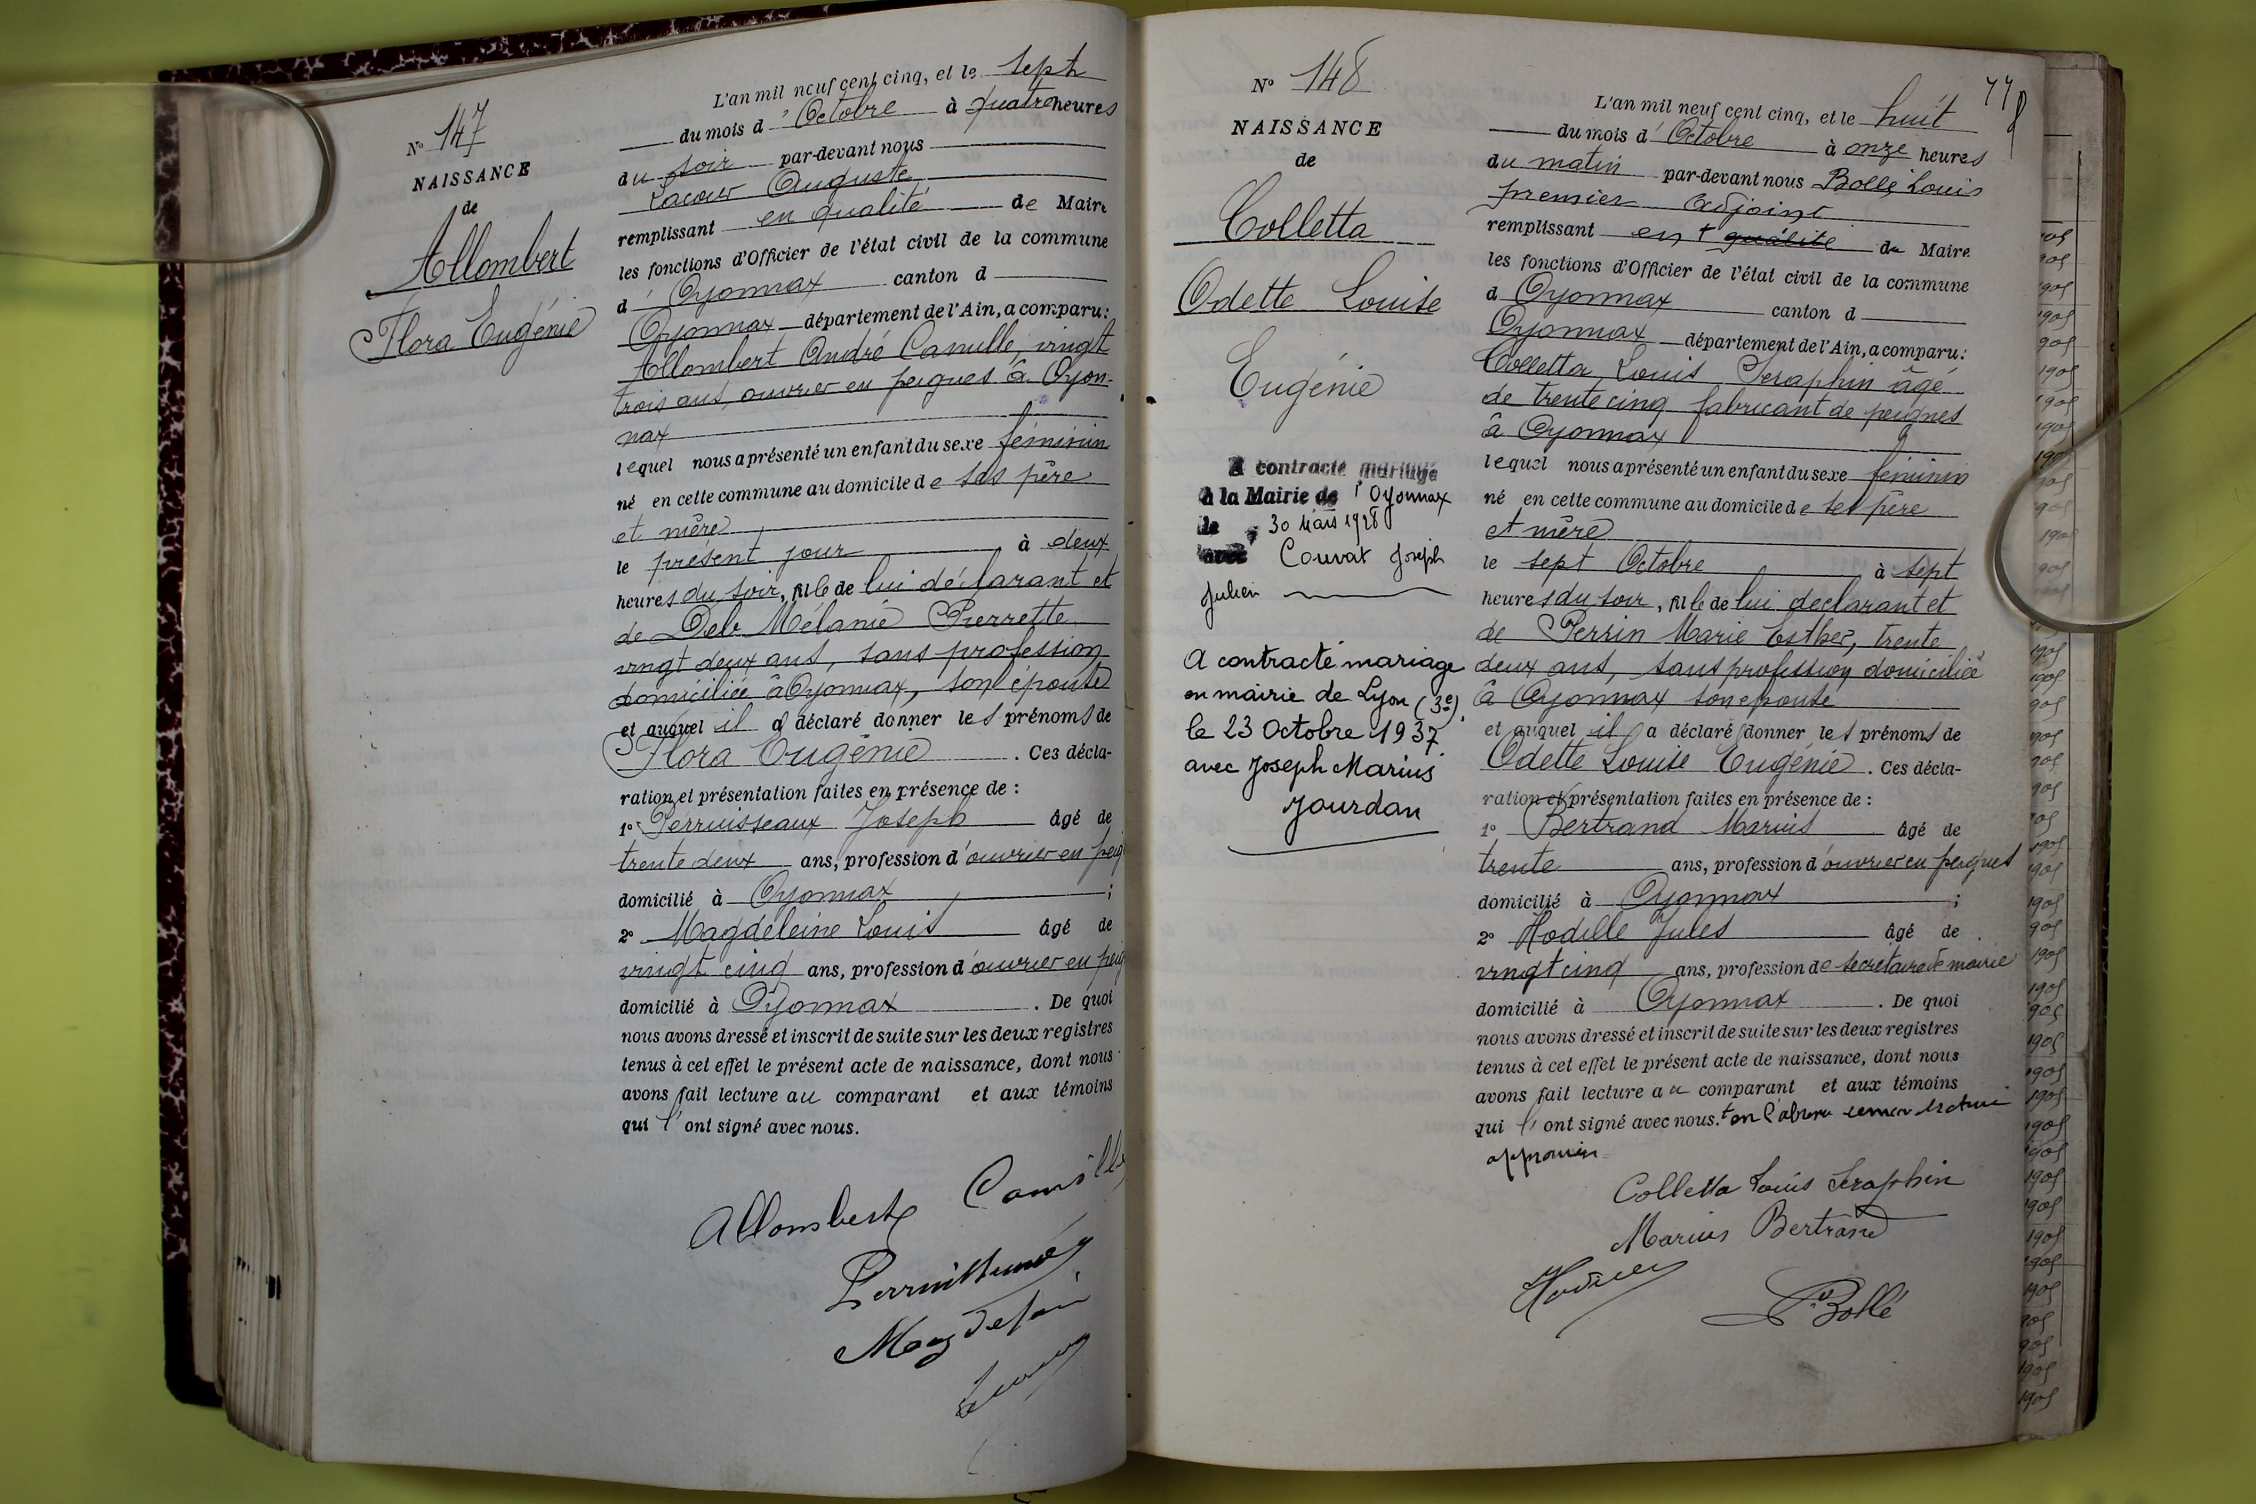 N° 147
NAISSANCE
de
Allombert
Flora Eugénie
L'an mil neuf cent cinq, et le sept
du mois d'Octobre à quatre heures
du soir par-devant nous
Lacour Auguste
remplissant en qualité de Maire
les fonctions d'Officier de l'état civil de la commune
d'Oyonnax canton d
Oyonnax département de l'Ain, a comparu:
Allombert André Camille, vingt
trois ans, ouvrier en peignes à Oyon-
nax
lequel nous a présenté un enfant du sexe féminin
né en cette commune au domicile de ses père
et mère
le présent jour à deux
heures du soir, fille de lui déclarant et
de Mélanie Pierrette
vingt deux ans, sans profession
domiciliée à Oyonnax, son épouse
et auquel il a déclaré donner les prénoms de
Flora Eugénie. Ces décla-
ration et présentation faites en présence de :
1° Perruisseaux Joseph âgé de
trente deux ans, profession d'ouvrier en peig
domicilié à Oyonnax ;
2° Magdeleine Louis âgé de
vingt cinq ans, profession d'ouvrier en peig
domicilié à Oyonnax. De quoi
nous avons dressé et inscrit de suite sur les deux registres
tenus à cet effet le présent acte de naissance, dont nous
avons fait lecture au comparant et aux témoins
qui l'ont signé avec nous.
Allombert Camille
778
N° 148
NAISSANCE
de
Colletta
Odette Louise
Eugénie
A contracté mariage
à la Mairie de Oyonnax
le 30 Mars 1928
avec Couvat Joseph
Julien
A contracté mariage
en mairie de Lyon (3e)
le 23 Octobre 1937
avec Joseph Marius
Jourdan
L'an mil neuf cent cinq, et le huit
du mois d'Octobre à onze heures
du matin par-devant nous Bollé Louis
premier adjoint
remplissant en + qualité du Maire
les fonctions d'Officier de l'état civil de la commune
d Oyonnax canton d
Oyonnax département de l'Ain, a comparu:
Colletta Louis Seraphin âgé
de trente cinq fabricant de peignes
à Oyonnax
lequel nous a présenté un enfant du sexe féminin
né en cette commune au domicile de ses père
et mère
le sept Octobre à sept
heures du soir, fille de lui declarant et
de Perrin Marie Esther, trente
deux ans, sans profession domiciliée
à Oyonnax son epouse
et auquel il a déclaré donner les prénoms de
Odette Louise Eugénie. Ces décla-
ration et présentation faites en présence de :
1° Bertrand Marius âgé de
trente ans, profession d'ouvrier en peignes
domicilié à Oyonnax ;
2° Hodille Jules âgé de
vingt cinq ans, profession de secrétaire de mairie
domicilié à Oyonnax. De quoi
nous avons dressé et inscrit de suite sur les deux registres
tenus à cet effet le présent acte de naissance, dont nous
avons fait lecture au comparant et aux témoins
qui l'ont signé avec nous.
Colletta Louis Seraphin
Marius Bertrand
Bollé